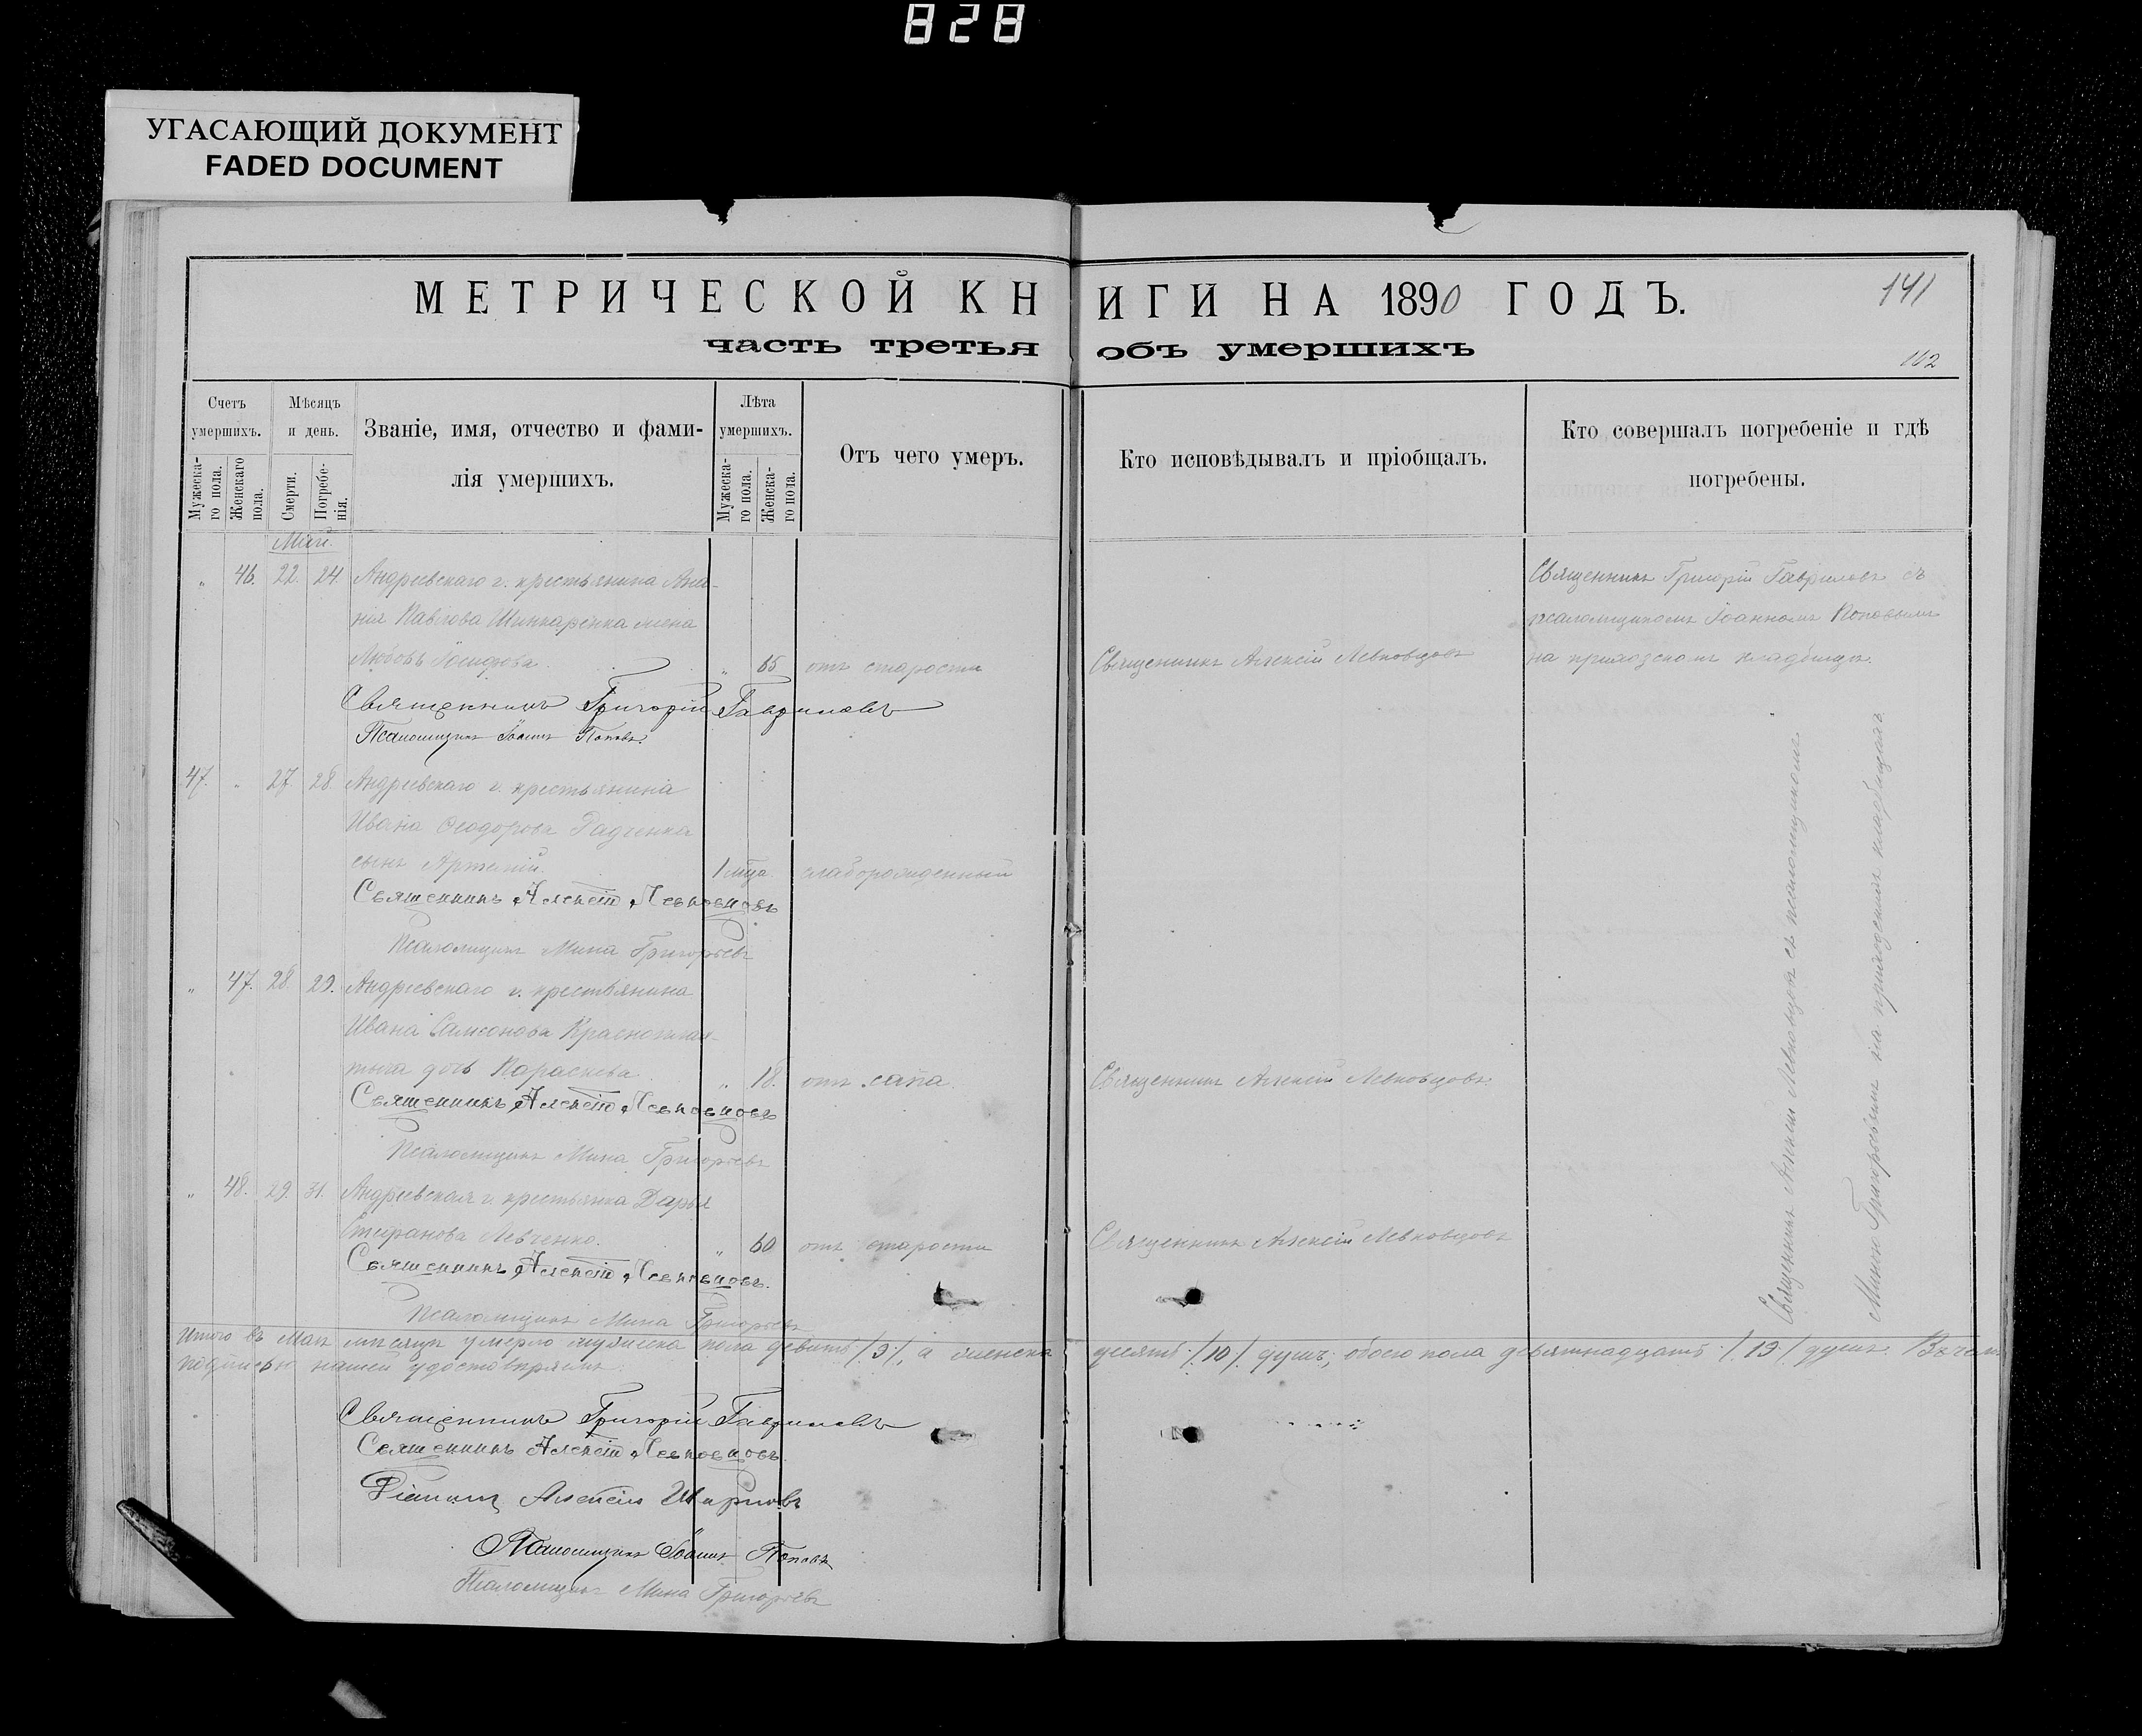 828
УГАСАЮЩИЙ ДОКУМЕНТ
FADED DOCUMENT
МЕТРИЧЕСКОЙ КНИГИ НА 1890 ГОДЪ.
141
часть третья объ умершихъ
102
Счетъ умершихъ.
Мужеска-го пола.
Женскаго пола.
Мѣсяцъ и день.
Смерти.
Погребе-нія.
Званіе, имя, отчество и фами-
лія умершихъ.
Лѣта умершихъ.
Мужеска-го пола.
Женска-го пола.
Отъ чего умеръ.
Кто исповѣдывалъ и пріобщалъ.
Кто совершалъ погребеніе и гдѣ
погребены.
Май.
" 46. 22. 24. Андреевскаго с. крестьянина Ана-
нія Павлова Шинкаренка жена
Любовь Іосифова. " 65 отъ старости
Священникъ Алексій Левковцовъ
Священникъ Григорій Гавриловъ съ
псаломщикомъ Іоанномъ Поповымъ
на приходскомъ кладбищѣ.
Священникъ Григорій Гавриловъ
Псаломщикъ Іоаннъ Поповъ.
47. " 27. 28. Андреевскаго с. крестьянина
Ивана Ѳеодорова Радченка
сынъ Артемій. 1 мѣца. слаборожденный
Священникъ Алексій Левковцовъ
Псаломщикъ Мина Григорьевъ
" 47. 28 29. Андреевскаго с. крестьянина
Ивана Самсонова
дочь Параскева. " 18. отъ сапа.
Священникъ Алексій Левковцовъ.
Священникъ Алексій Левковцовъ
Псаломщикъ Мина Григорьевъ
" 48. 29. 31. Андреевская с. крестьянка Дарья
Стефанова Левченко. " 60 отъ старости
Священникъ Алексій Левковцовъ
Священникъ Алексій Левковцовъ.
Псаломщикъ Мина Григорьевъ
Священникъ Алексій Левковцовъ съ псаломщикомъ
Миною Григорьевымъ на приходскомъ кладбищѣ
Итого въ Маѣ мѣсяцѣ умерло мужеска пола девять /9/, а женска десять /10/ душъ; обоего пола девятнадцать /19/ душъ. Въ чемъ
подписью нашей удостовѣряемъ
Священникъ Григорій Гавриловъ
Священникъ Алексій Левковцовъ.
Діаконъ Алексій
Псаломщикъ Іоаннъ Поповъ
Псаломщикъ Мина Григорьевъ